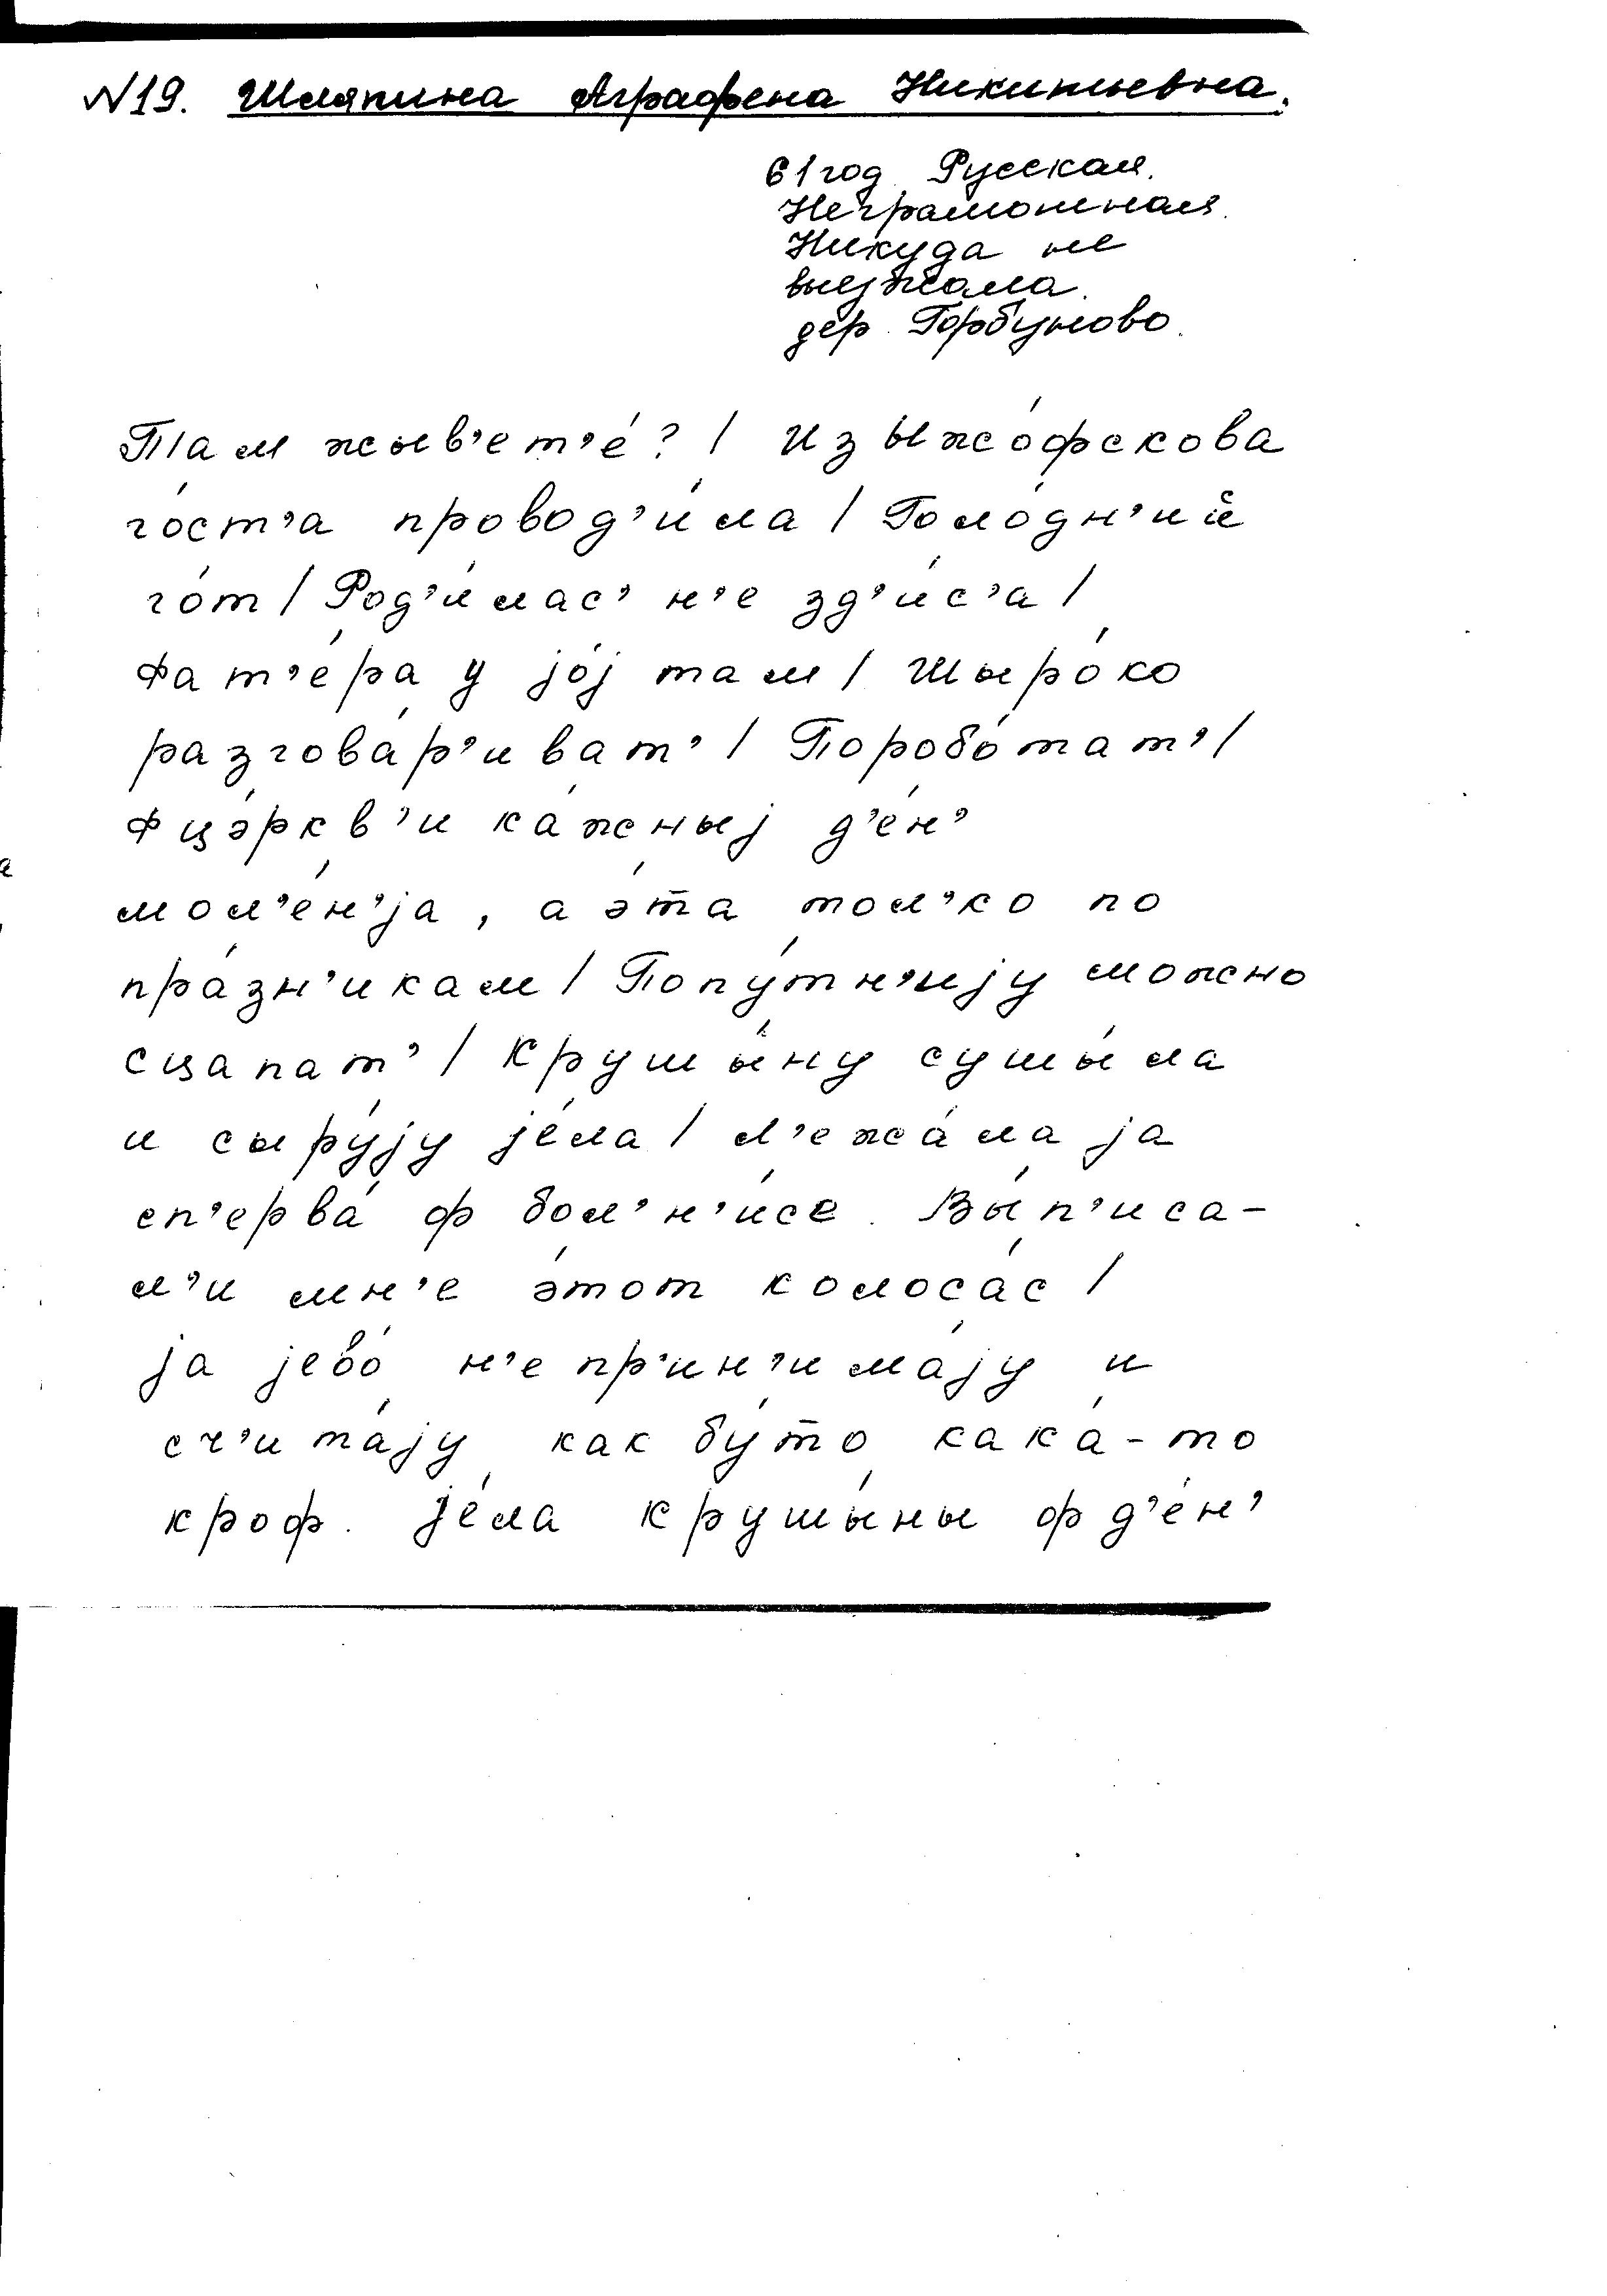 N19. Шляпина Аграфена Никитьевна.
61 год. Русская.
Неграмотная.
Никуда не
выезжала.
дер. Горбуново.
Там жыв'ет'é? / Из Ыжóфскова
гóст'а провод'и́ла / Голóдн'ий
гóт / Род'и́лас' н'е зд'и́с'а /
Фат'éра у јóј там / Шырóко
разговáр'иват' / Поробóтат' /
Фцэ́ркв'и кáжныј д'éн'
мол'éн'jа, а э́т̄а тол'ко по
прáзн'икам / Попу́тн'ијy можно
сцапат' / Крушы́ну сушы́ла
и сыру́ју јéла / Л'ежáла ја
сп'ервá ф бол'н'и́се. Вы́п'иса-
л'и мн'е э́тот колосáс /
ја јевó н'е пр'ин'имáју и
сч'итáју как бу́т̄о какá-то
кроф. Јéла крушы́ны ф д'éн'